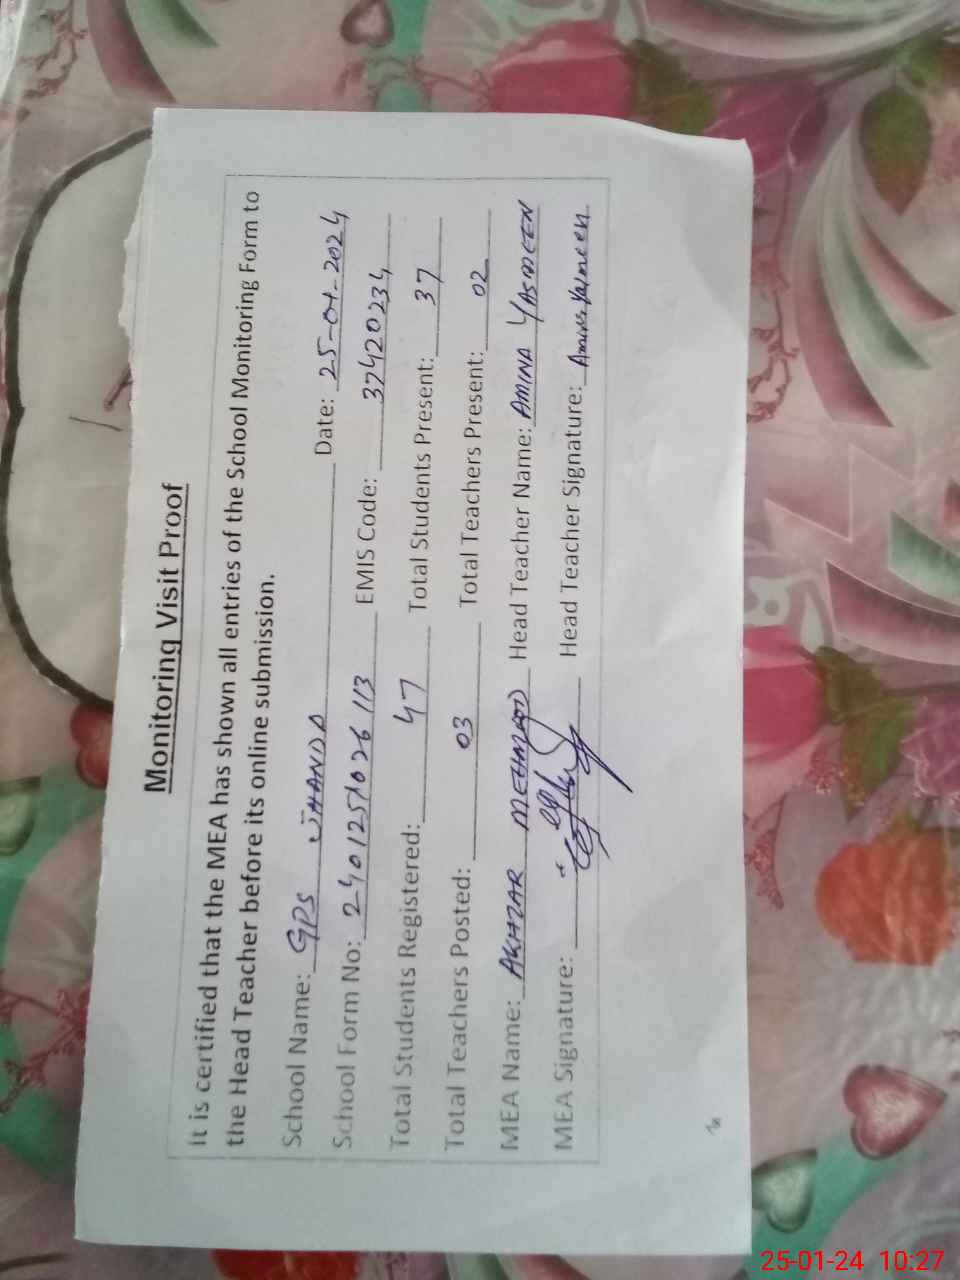 Monitoring Visit Proof
It is certified that the MEA has shown all entries of the School Monitoring Form to
the Head Teacher before its online submission.
School Name: GPS JHANDA Date: 25-01-2024
School Form No: 2401251026113 EMIS Code: 37420234
Total Students Registered: 47 Total Students Present: 37
Total Teachers Posted: 03 Total Teachers Present: 02
MEA Name: AKHZAR MEHMOOD Head Teacher Name: AMINA YASMEEN
MEA Signature: Head Teacher Signature: Amina Yasmeen
25-01-24 10:27